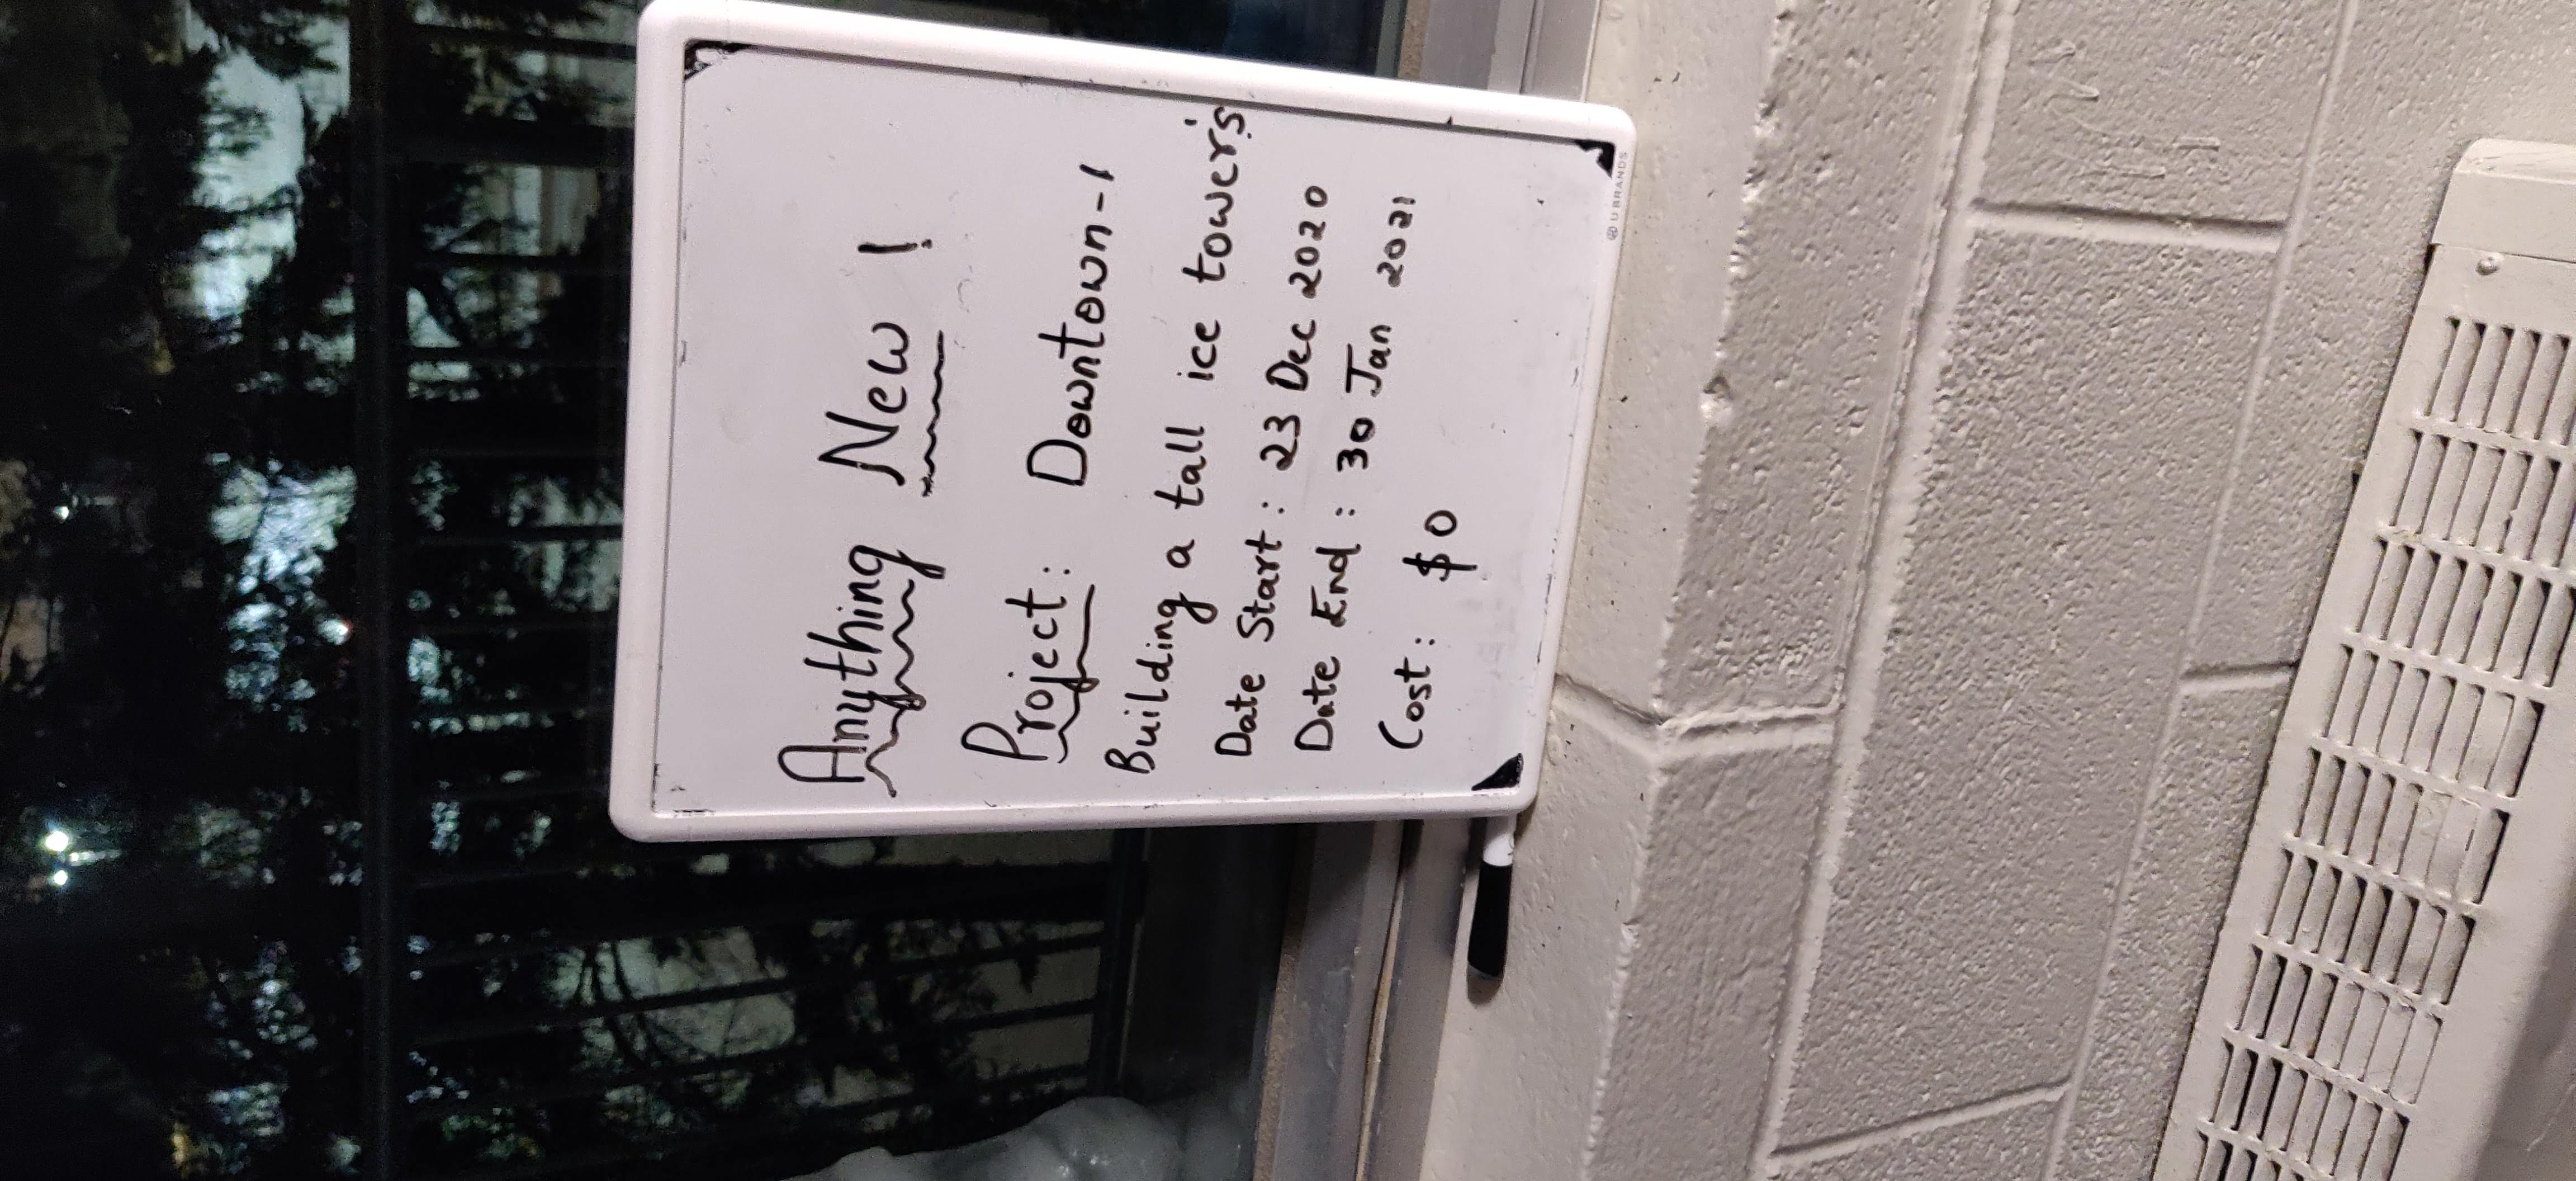 Anything New !
Project: Downtown-1
Building a tall ice tower's
Date Start : 23 Dec 2020
Date End : 30 Jan 2021
Cost: $0
U BRANDS